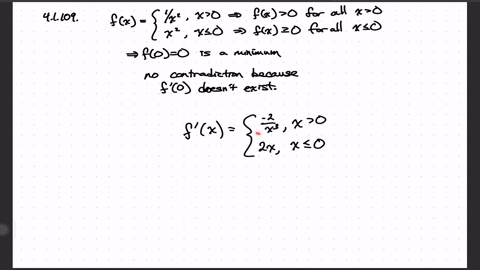 4.1.109. f(x) = { 1/x², x>0 ⇒ f(x)>0 for all x>0
x², x≤0 ⇒ f(x)≥0 for all x≤0
⇒ f(0)=0 is a minimum
no contradiction because
f'(0) doesn't exist.
f'(x) = { -2/x³, x>0
2x, x≤0